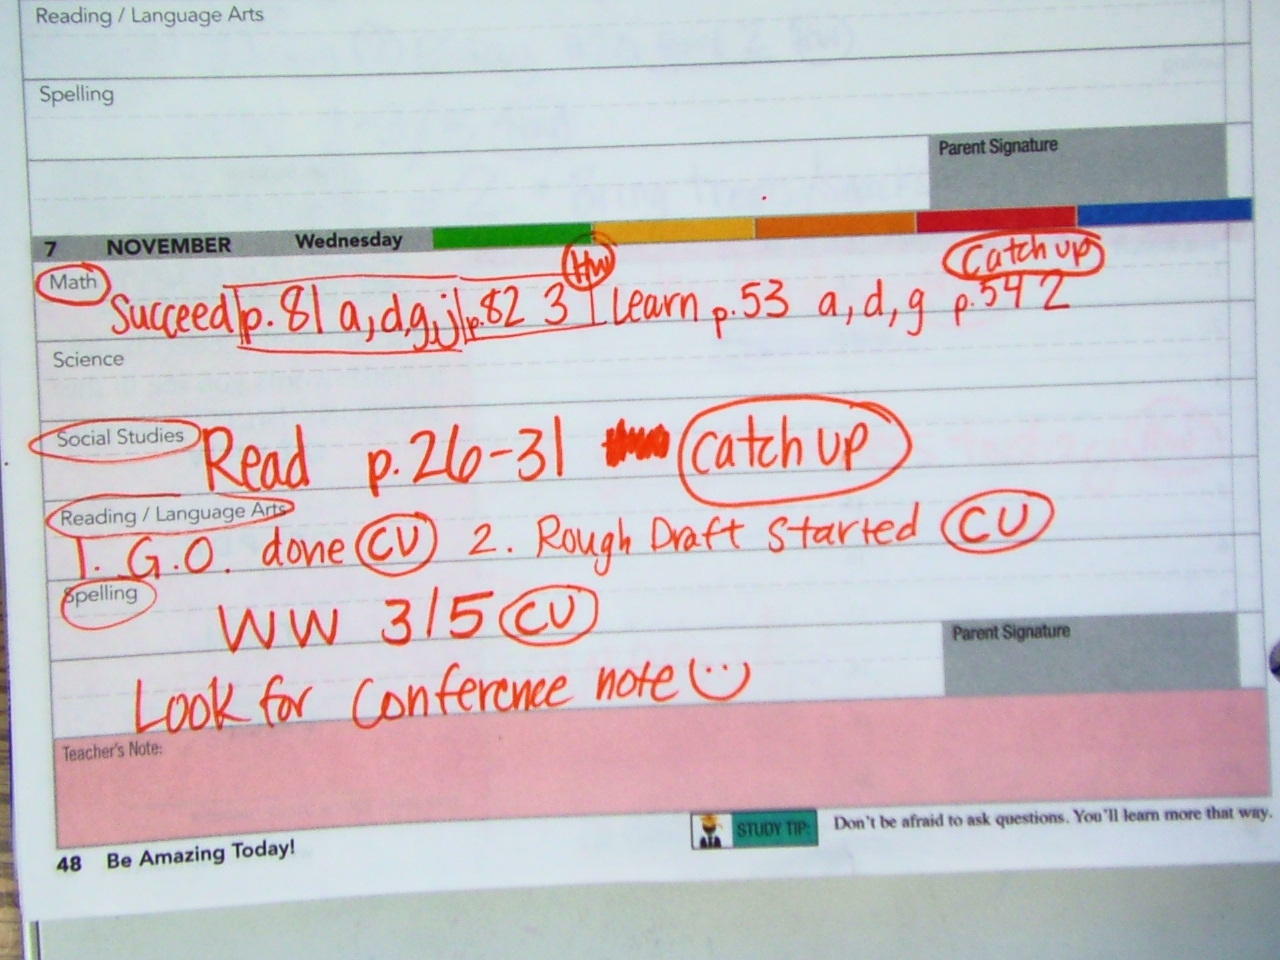 Reading / Language Arts
Spelling
Parent Signature
7 NOVEMBER Wednesday
Math
HW
Catch up
Succeed p. 81 a,d,g,j p.82 3 Learn p.53 a, d, g p.54 2
Science
Social Studies
Read p.26-31 Catch up
Reading / Language Arts
1. G.O. done CU 2. Rough Draft Started CU
Spelling
WW 3/5 CU
Parent Signature
Look for Conference note
Teacher's Note:
STUDY TIP: Don't be afraid to ask questions. You'll learn more that way.
48 Be Amazing Today!